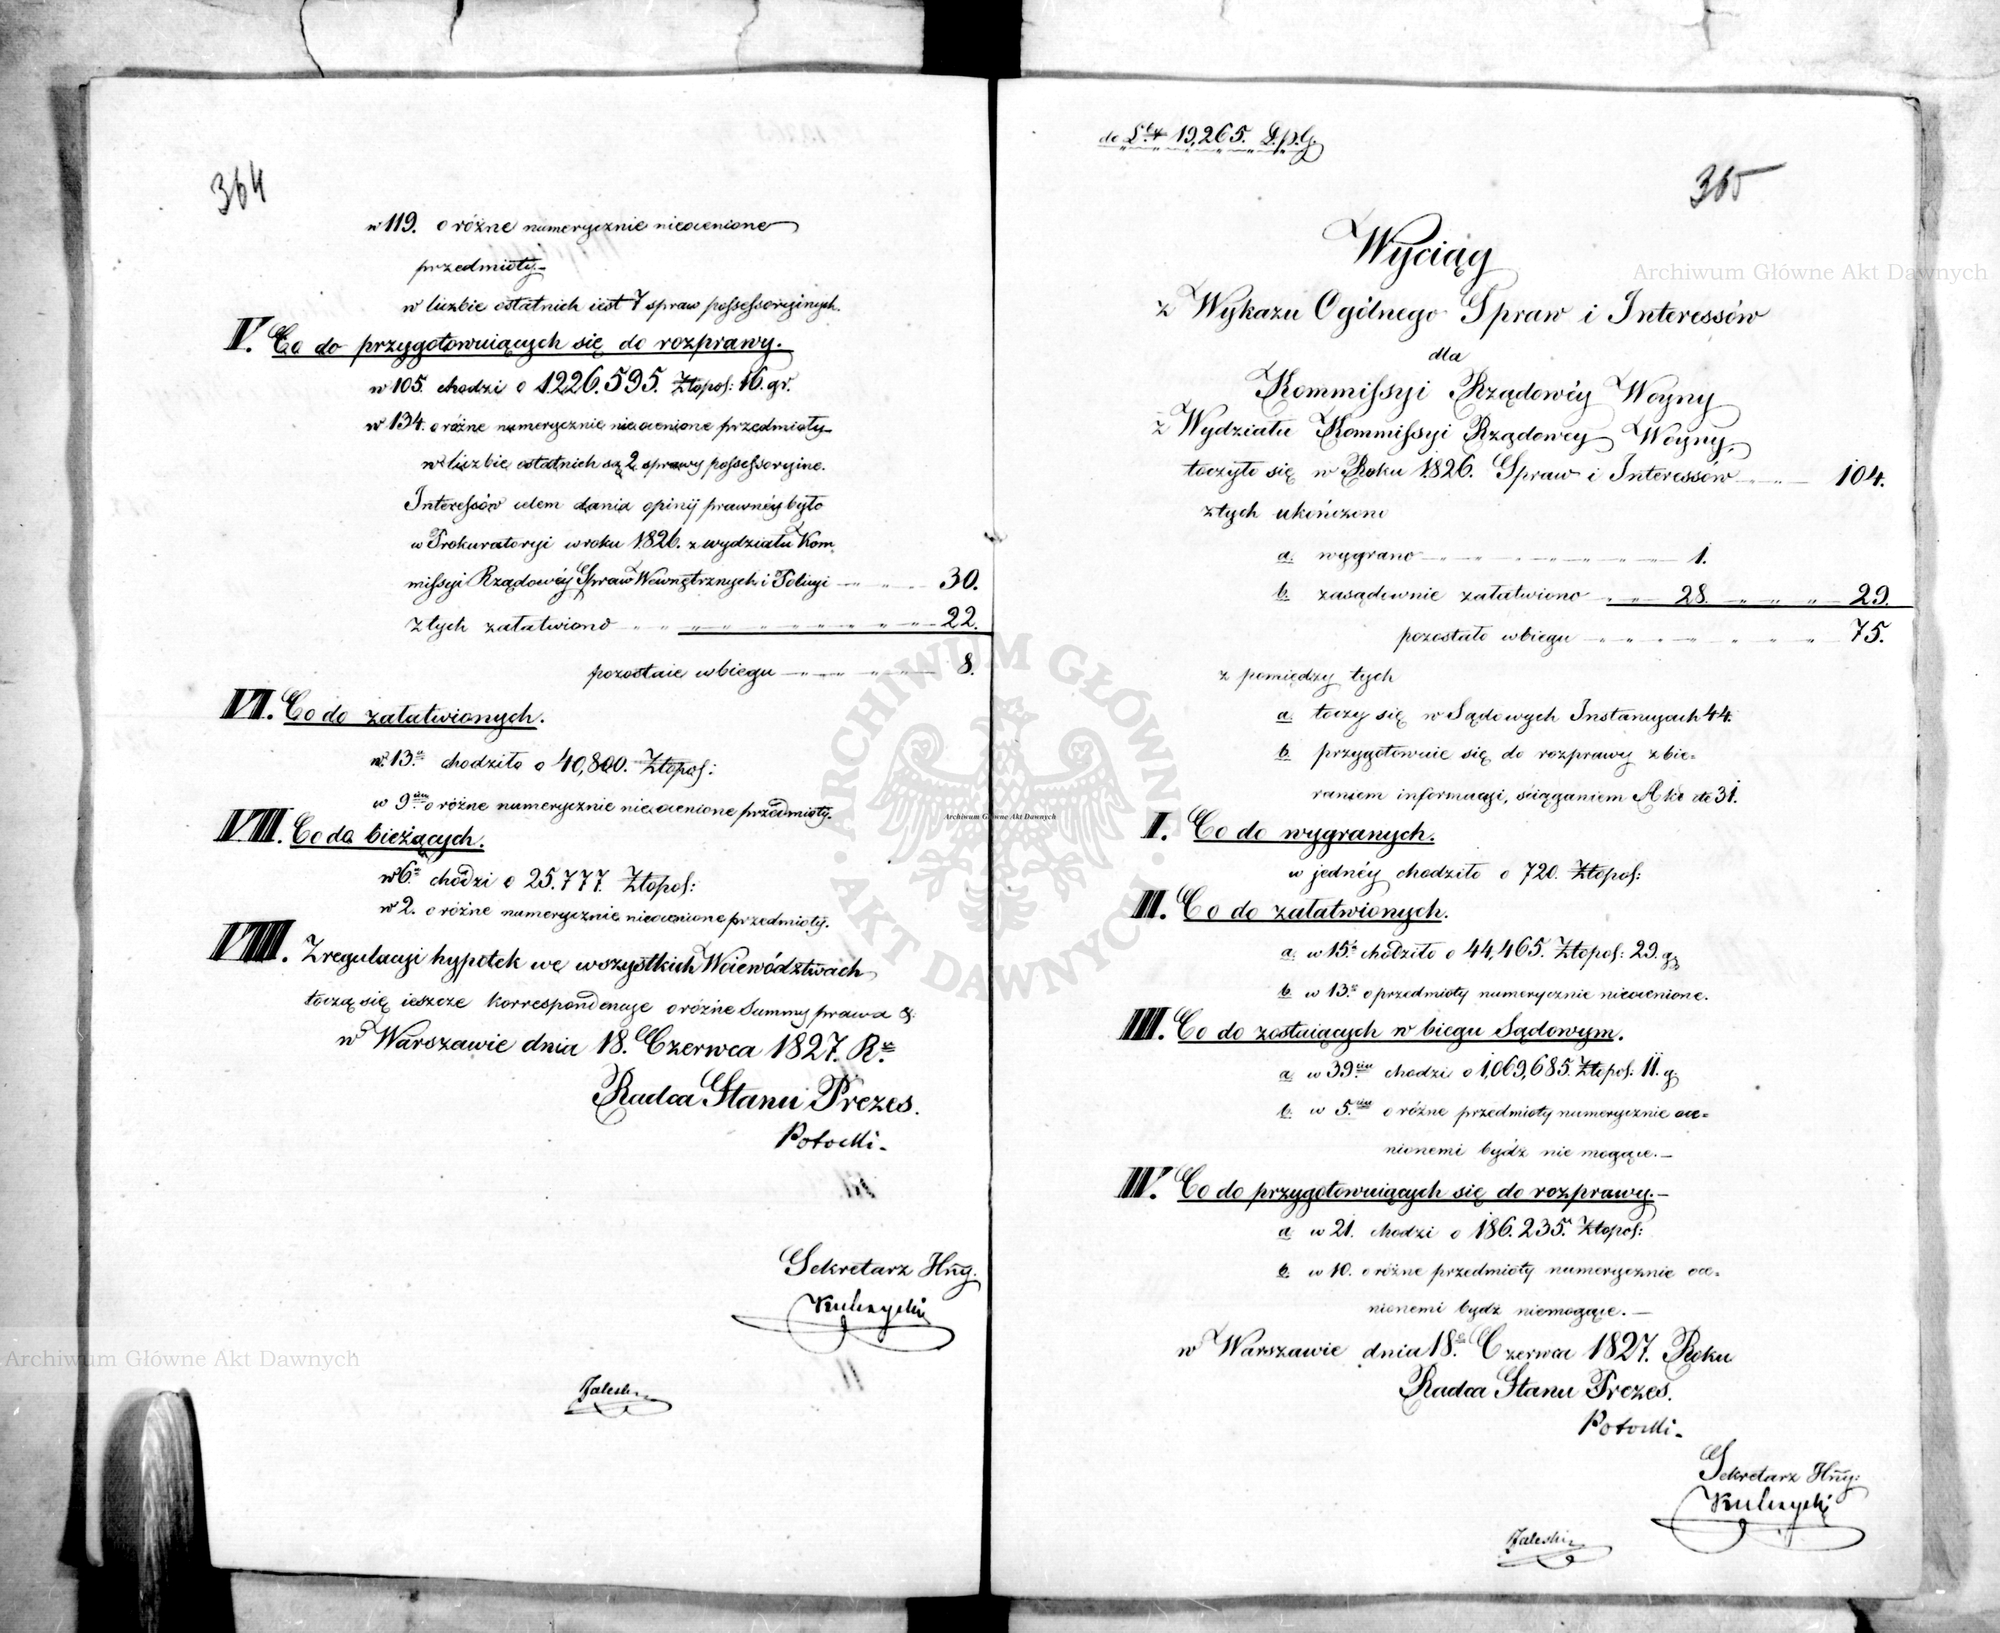 364
w 119. o różne numerycznie nieocenione
przedmioty.
w liczbie ostatnich iest 7 spraw possessoryinych.
V. Co do przygotowuiących się do rozprawy.
w 105. chodzi o 1226.595. Złopol: 16. gr.
w 134. o różne numerycznie nieocenione przedmioty
w liczbie ostatnich są 2 sprawy possessoryine.
Interessów celem dania opinij prawnéy było
w Prokuratoryi w roku 1826. z wydziału Kom
missyi Rządowéy Spraw Wewnętrznych i Policyi 30.
Z tych załatwiono 22.
pozostaie w biegu 8.
VI. Co do załatwionych.
w 13. chodziło o 40,800. Złopol:
w 9. o różne numerycznie nieocenione przedmioty.
VII. Co do bieżących.
w 6. chodzi o 25.777. Złopol:
w 2. o różne numerycznie nieocenione przedmioty.
VIII. Z regulacyi hypotek we wszystkich Woiewództwach
toczą się ieszcze korrespondencye o różne Summy prawa &
w Warszawie dnia 18. Czerwca 1827. R.
Radca Stanu Prezes.
Potocki.
Sekretarz
Kulczycki
Zaleski
de 19,265.
365
Wyciąg
z Wykazu Ogólnego Spraw i Interessów
dla
Kommissyi Rządowéy Woyny
z Wydziału Kommissyi Rządowey Woyny,
toczyło się w Roku 1826. Spraw i Interessów 104.
z tych ukończono
a. wygrano 1.
b. zasądownie załatwiono 28. 29.
pozostało w biegu 75.
z pomiędzy tych
a. toczy się w Sądowych Instancyach 44.
b. przygotowuie się do rozprawy zbie=
raniem informacyi, ściąganiem Akt etc 31.
I. Co do wygranych.
w jednéy chodziło o 720. Złopol:
II. Co do załatwionych.
a. w 15. chodziło o 44,465. Złopol: 29. g
b. w 13. o przedmioty numerycznie nieocenione.
III. Co do zostaiących w biegu Sądowym.
a. w 39. chodzi o 1,069,685. Złopol: 11. g
b. w 5. o różne przedmioty numerycznie oce=
nionemi bydź nie mogące.
IV. Co do przygotowuiących się do rozprawy.
a. w 21. chodzi o 186.235. Złopol:
b. w 10. o różne przedmioty numerycznie oce=
nionemi bydz niemogące.
w Warszawie dnia 18. Czerwca 1827. Roku
Radca Stanu Prezes.
Potocki.
Sekretarz
Kulczycki
Zaleski
Archiwum Główne Akt Dawnych
Archiwum Główne Akt Dawnych
Archiwum Główne Akt Dawnych
ARCHIWUM GŁÓWNE AKT DAWNYCH